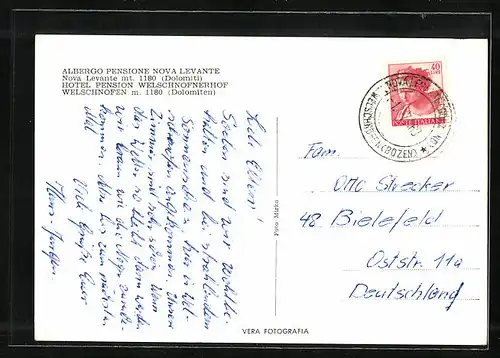 ALBERGO PENSIONE NOVA LEVANTE
Nova Levante mt. 1180 (Dolomiti)
HOTEL PENSION WELSCHNOFNERHOF
WELSCHNOFEN m. 1180 (Dolomiten)
Liebe Eltern!
Soeben sind wir wohlbe-
halten und bei strahlendem
Sonnenschein hier in Wel-
schnofen angekommen. Unser
Zimmer sehr schön. Wenn
das Wetter so bleibt dann werden
wir braun wie die Neger zurück-
kommen. Alles bis zum nächsten
Mal
Viele Grüße Euer
Hans-Jürgen
Foto Mirko
VERA FOTOGRAFIA
40
POSTE ITALIANE
(BOZEN)
Fam.
Otto Strecker
48 Bielefeld
Oststr. 11a
Deutschland